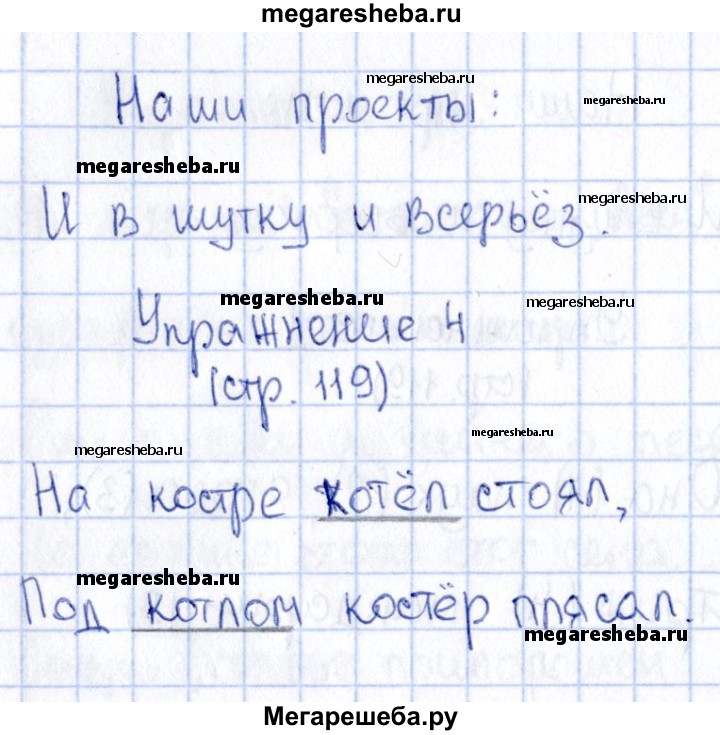 megaresheba.ru
megaresheba.ru
Наши проекты:
megaresheba.ru
megaresheba.ru
И в шутку и всерьёз.
megaresheba.ru
megaresheba.ru
megaresheba.ru
Упражнение 4
(стр. 119)
megaresheba.ru
megaresheba.ru
На костре котёл стоял,
megaresheba.ru
Под котлом костёр плясал.
megaresheba.ru
Мегарешеба.ру